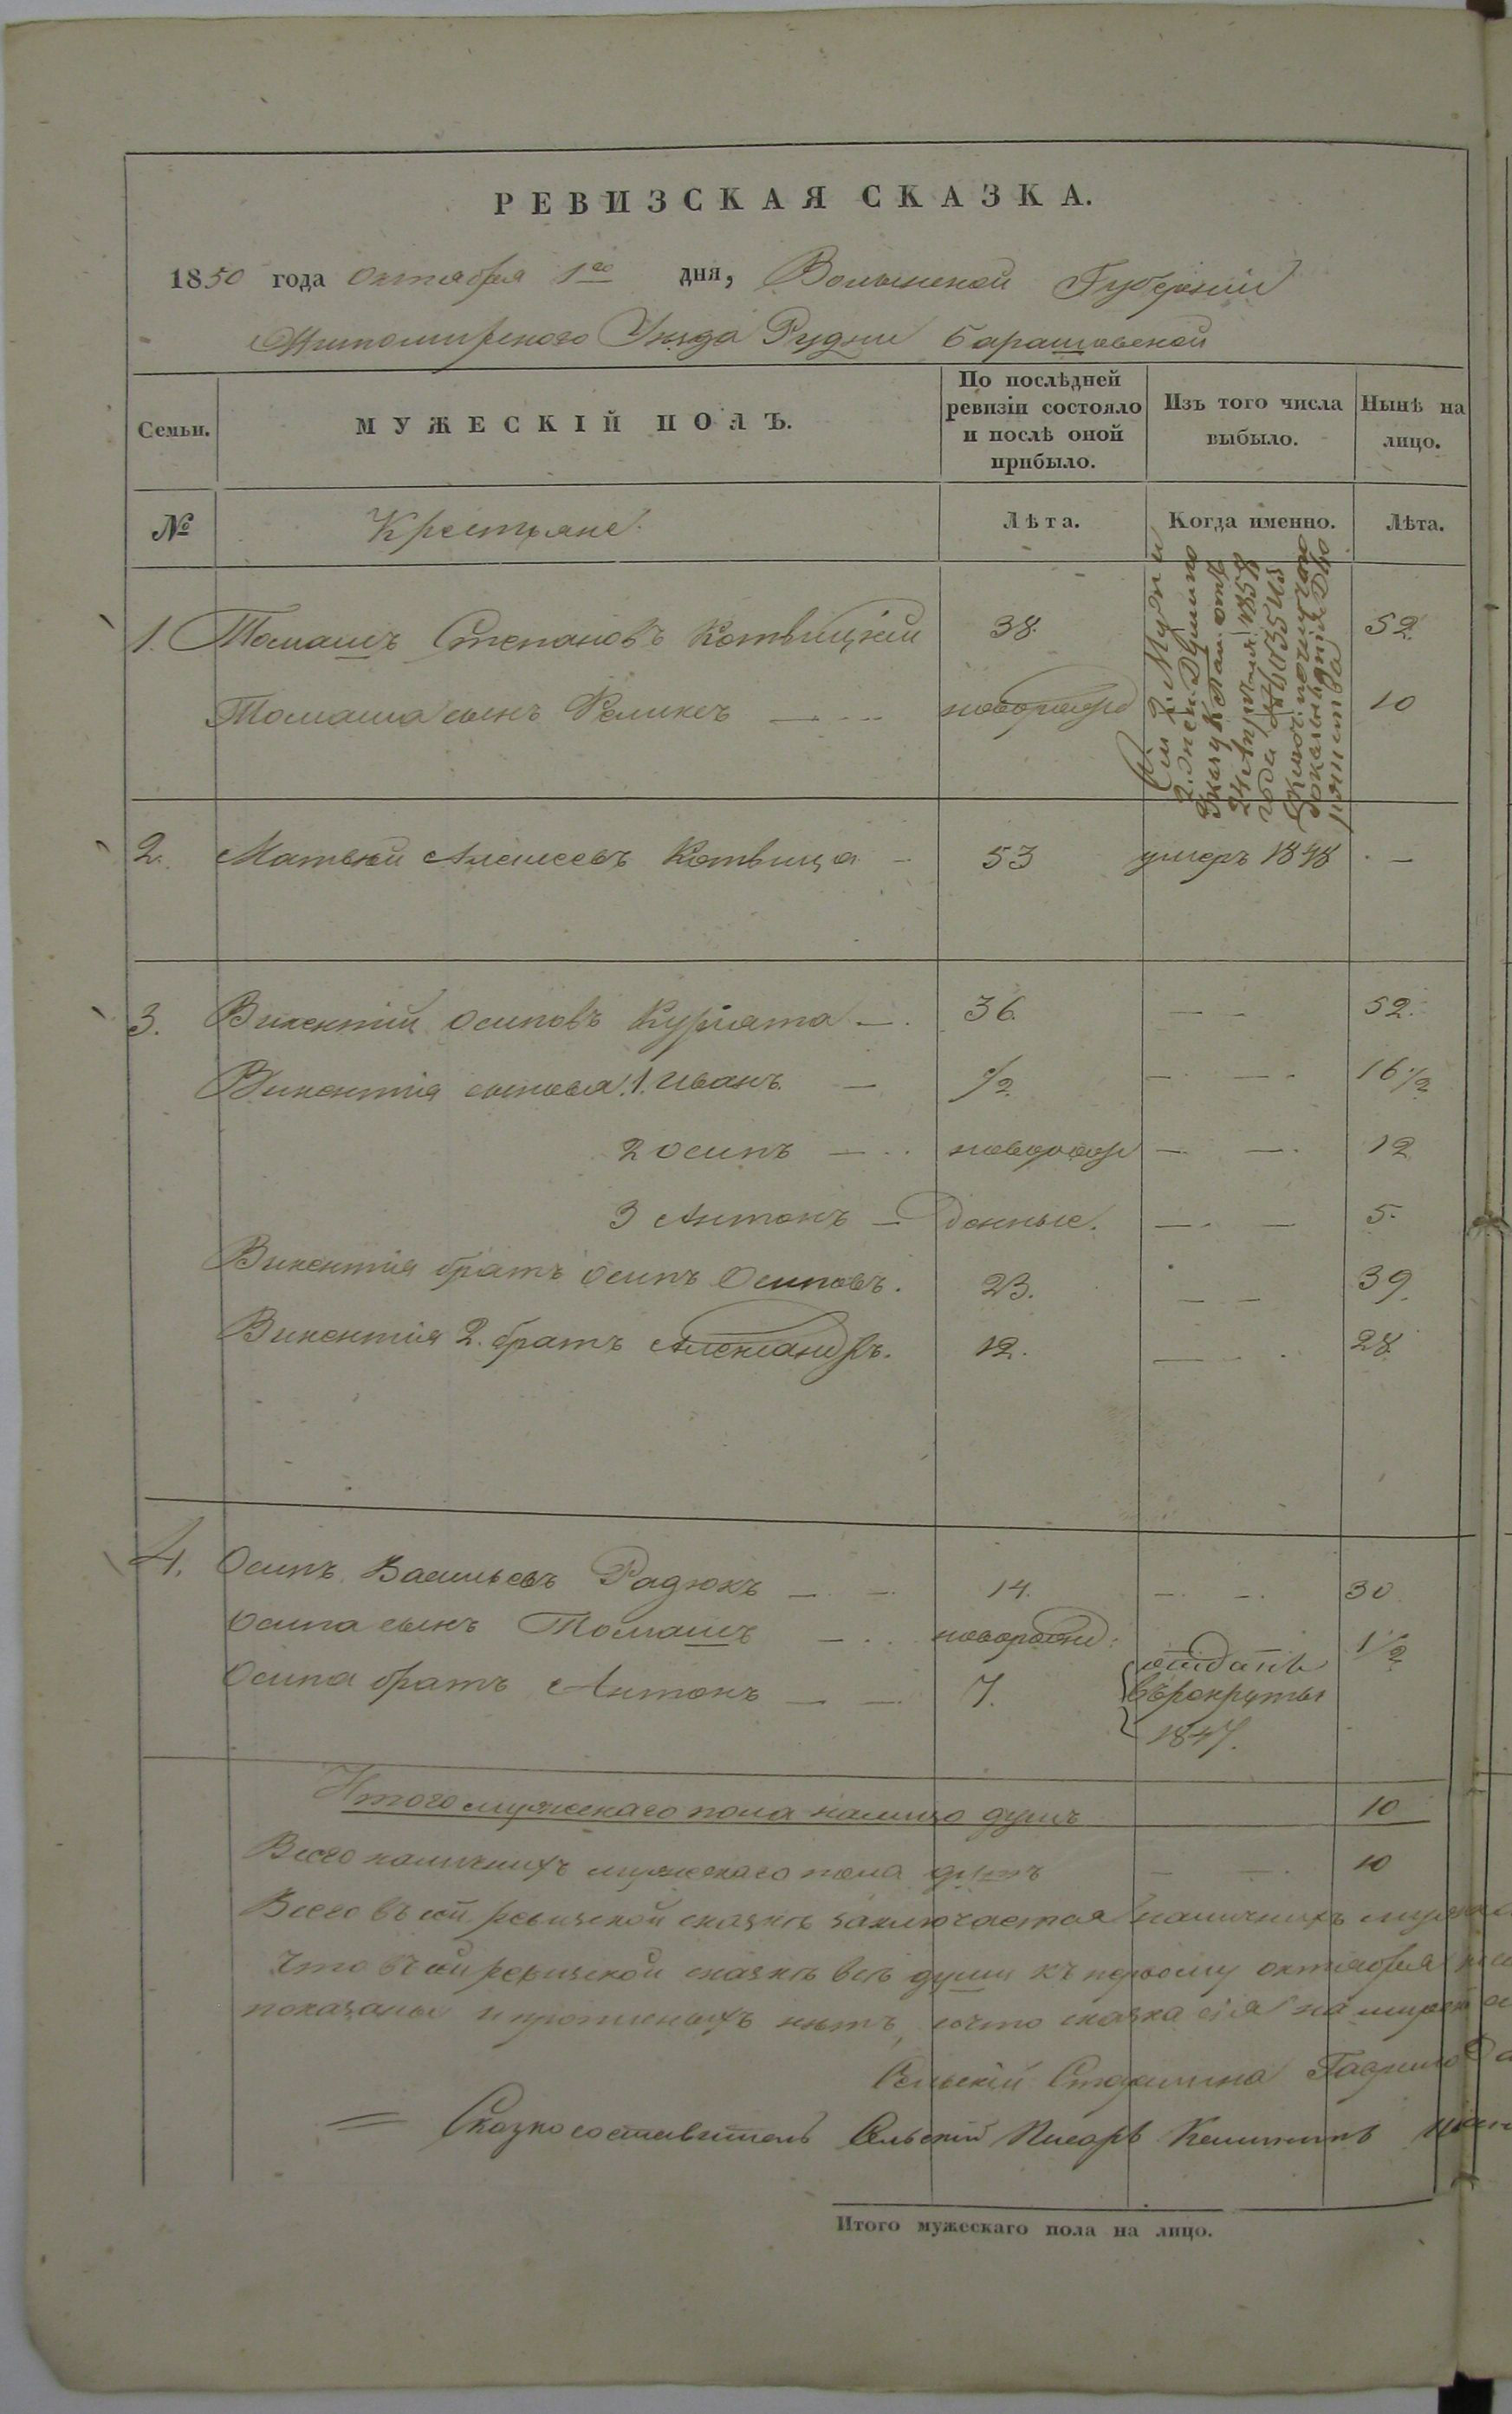 РЕВИЗСКАЯ СКАЗКА.
1850 года Октября 1го дня, Волынской Губерніи
Житомирского Уѣзда Рудни Барашовской
Семьи.
МУЖЕСКІЙ ПОЛЪ.
По послѣдней ревизіи состояло и послѣ оной прибыло.
Изъ того числа выбыло.
Нынѣ на лицо.
№
Крестьяне.
Лѣта.
Когда именно.
Лѣта.
1. Томашъ Степановъ Котвицкій 38. 52.
Томаша сынъ Феликсъ новорожд 10
Сіи 2. Муж и
24 Апрѣля 1858
года
2. Матвей Алексеевъ Котвица 53 умеръ 1848 —
3. Викентій Осиповъ Курята — 36. — — 52.
Викентія сыновья 1. Иванъ — 1/2 — — 16 1/2
2 Осипъ — новорож — — 12
3 Антонъ — денные. — — 5.
Викентія братъ Осипъ Осиповъ. 23. — — 39.
Викентія 2. братъ Александръ. 12. — 28.
4. Осипъ Васильевъ Радюкъ — — 14. — — 30
Осипа сынъ Томашъ — новорожд: 1 1/2
Осипа братъ Антонъ — — 7. отданъ
въ рекруты
1847.
Итого мужескаго пола налицо душъ 10
Всего наличныхъ мужескаго пола душъ — — 10
Всего въ сей ревизской сказкѣ заключается наличныхъ
Что въ сей ревизской сказкѣ всѣ души къ первому октября
показаны и прописныхъ нѣтъ, и что сказка сія на
Сельскій Старшина Гаврило
Сказкосоставитель Сельскій Писарь
Итого мужескаго пола на лицо.